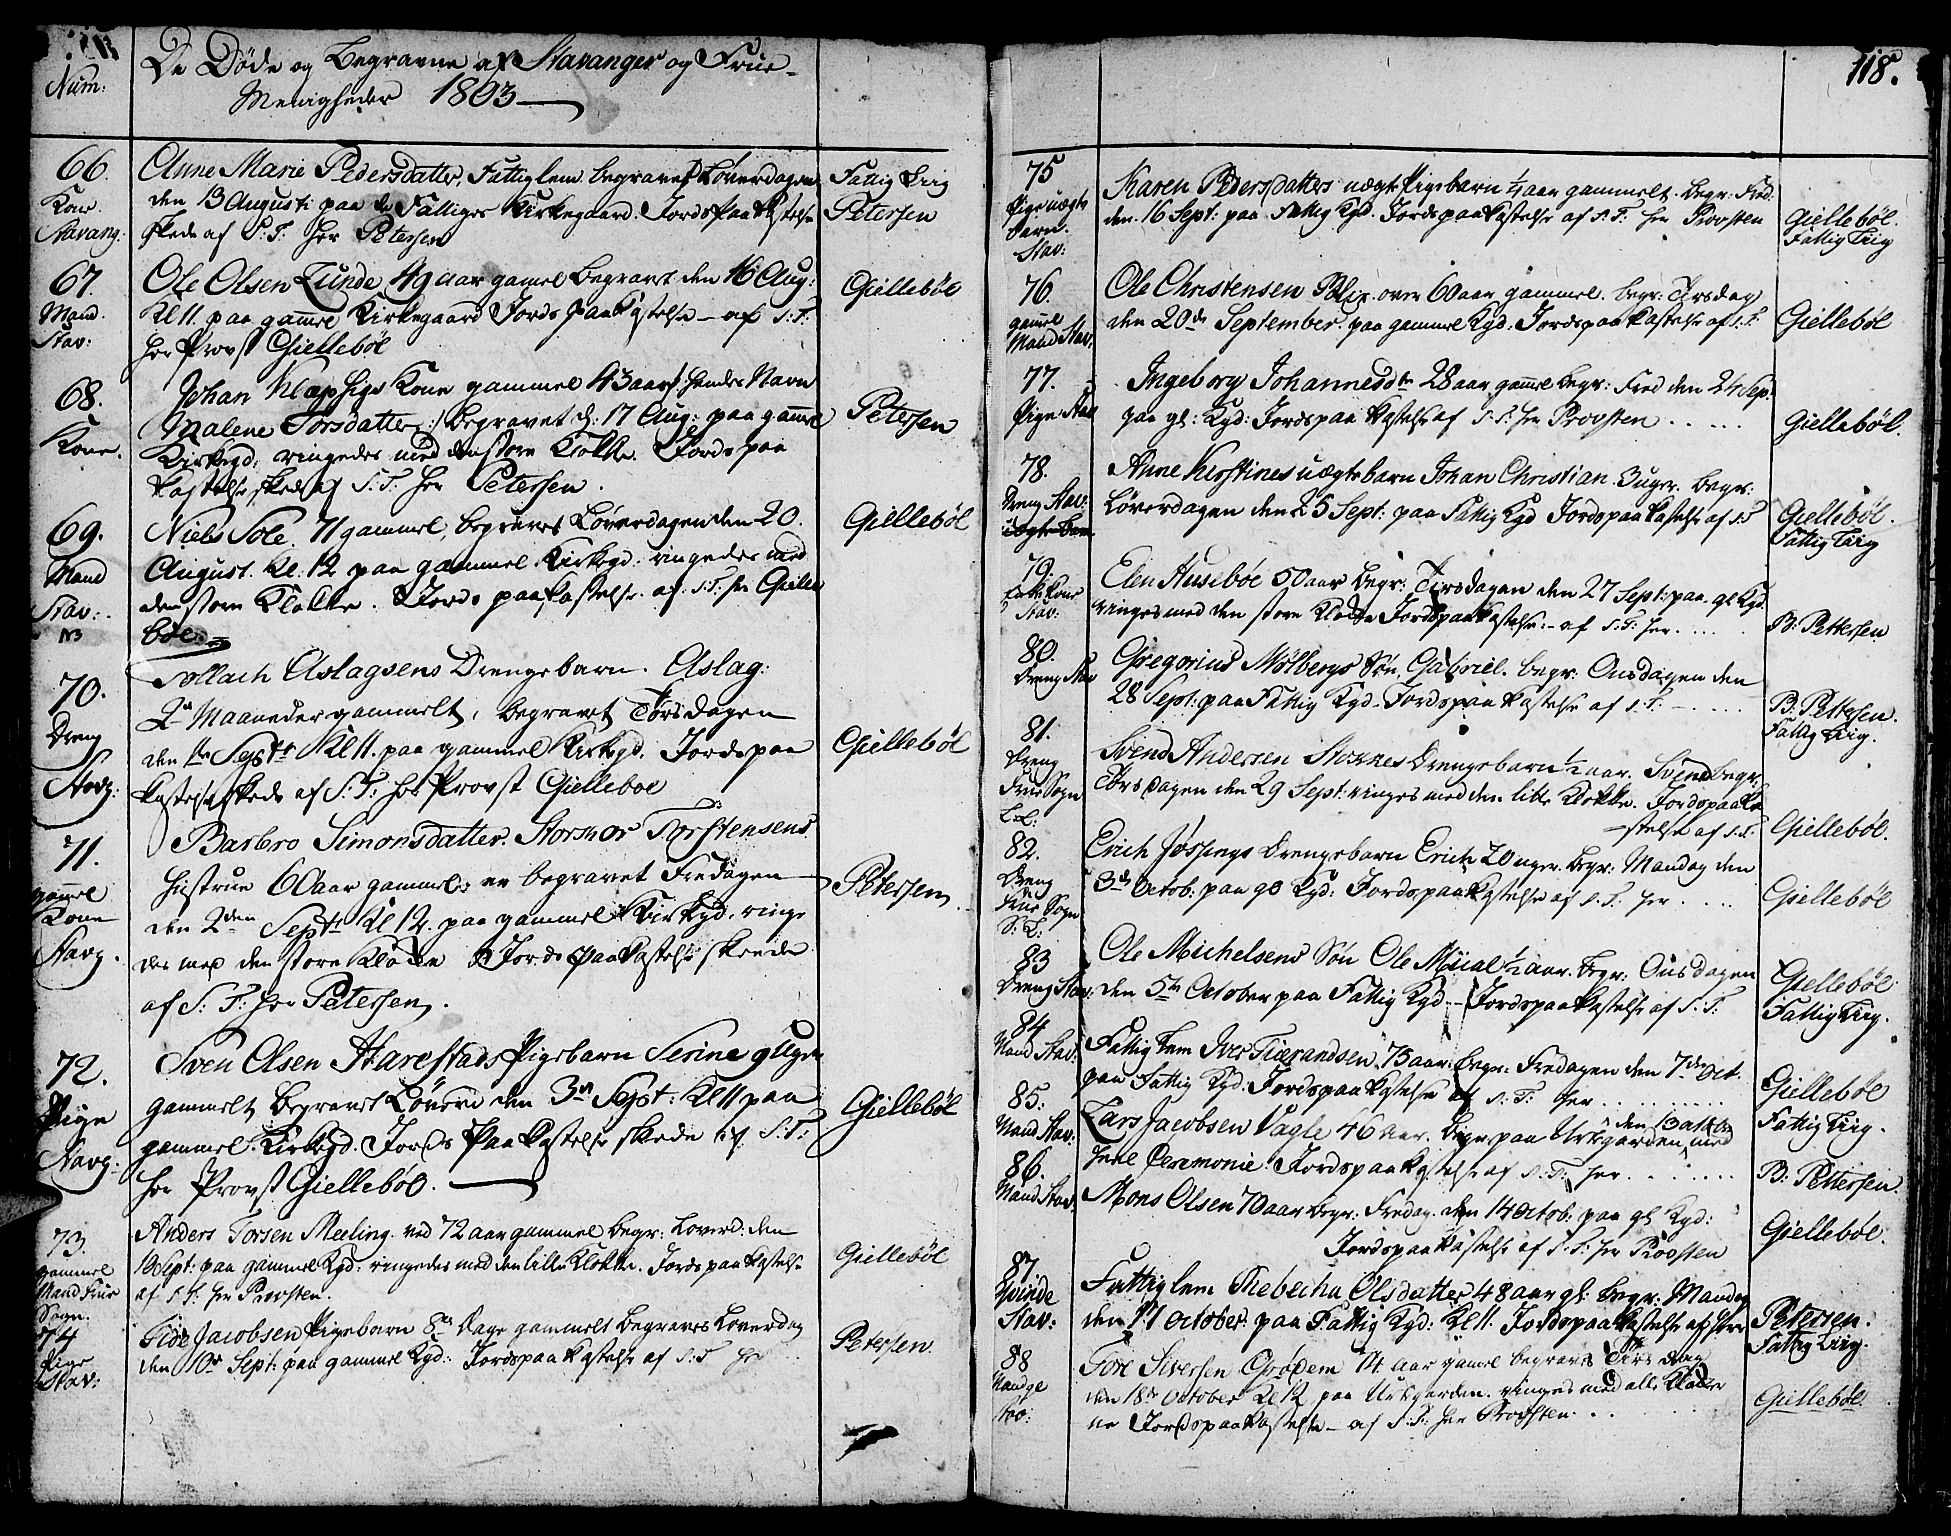 Num:
De Døde og Begravne af Stavanger og Frue-
Menigheder 1803
66.
Kone.
Stavang:
Anne Marie Pedersdatter, Fattiglem begravet Løverdagen
den 13 Augusti paa de Fattiges Kirkegaard. Jordspaakastelse
skede af S: T: Her Petersen
Fattig Liig
Petersen
67
Mand.
Stav:
Ole Olsen Lunde 49 aar gamel begravet den 16 Aug:
Kl 11. paa gamel Kirkegaard Jords paakastelse - af S: T:
Her Provst Giellebøl
Giellebøl
68.
Kone.
Johan Klapsigs Kone gammel 43 aar /: hendes Navn
Malene Torsdatter :/ begravet d: 17 Aug: paa gammel
Kirkegd: ringedes med den store Klokke. Jordspaa
kastelse skede af S: T: Her Petersen.
Petersen
69.
Mand
Stav:
Niels Sole. 71 gammel, begraves Løverdagen den 20.
August. Kl: 12 paa gammel Kirkegd: ringedes med
den store Klokke. Jords paakastelse. af S: T: Hr Gielle
bøl.
Giellebøl
70.
Dreng
Stavg:
Tollach Aslagsens Drengebarn. Aslag:
2 Maaneder gammelt, begravet Torsdagen
den 1te Septr Kl 11. paa gammel Kirkegd. Jordspaa
kastelse skede af S: T: Her Provst Giellebøl
Giellebøl
71.
gamel
Kone
Stavg.
Barbro Simonsdatter. Stormor Torstensens
Hustrue 60 aar gammel: er begravet Fredagen
den 2den Septr Kl 12. paa gammel Kirkegd. ringe
des med den store Klokke Jords paakastelse skeede
af S: T: Her Petersen.
Petersen
72.
Pige
Stavg:
Sven Olsen Harestads Pigebarn Serine 9 Uger
gammelt begravet Løverd den 3de Sept: Kl 11 paa
gammel Kirkegd. Jords Paakastelse skede af S: T:
Her Provst Giellebøl.
Giellebøl
73.
gammel
Mand Frue
Sogn.
Anders Torsen Meeling ved 72 aar gammel begr: Løverd: den
10 Sept: paa gammel Kgd: ringedes med den lille Klokke. Jords paakastelse
af S: T: Hr Provsten.
Giellebøl
74
Pige
Stav:
Jacobsens Pigebarn 8te Dage gammelt begraves Løverdag
den 10de Sept: paa gammel Kgd: Jordspaakastelse af S: T Her
Petersen
118.
75
Pige uægte
barn.
Stav:
Karen Pedersdatters uægte Pigebarn 1/4 aar gammelt. begr: Fred:
den 16 Sept: paa Fattig Kgd. Jordspaakastelse af S: T: Her Provsten
Giellebøl.
Fattig Liig
76.
gamel
Mand Stav:
Ole Christensen Blix over 60 aar gammel. begr: Tirsdag
den 20de September paa gammel Kgd: Jordspaakastelse af S: T
Giellebøl
77.
Pige Stav
Ingeborg Johannesdtr 28 aar gamel begr: Fred den 24 Sept:
paa gl: Kgd: Jordspaa kastelse af S: T: Her Provsten
Giellebøl.
78.
Dreng Stav:
uægte Barn
Anne Kirstines uægte barn Johan Christian. 3 uger. begr:
Løverdagen den 25 Sept: paa Fattig Kgd Jordspaakastelse af S: T
Giellebøl.
Fattig Liig
79.
Kone
Stav:
Elen Husebøe 50 aar begr: Tirsdagen den 27 Sept: paa gl Kgd.
ringes med den store Klokke Jordspaakastelse - af S: T: Her.
B: Pettersen
80.
Dreng Stav
Gregorius Mølbergs Søn, Gabriel. begr: Onsdagen den
28 Sept: paa Fattig Kgd. Jordspaakastelse af S: T:
B: Pettersen.
Fattig Liig.
81.
Dreng
Frue Sogn
Svend Andersen Stoknes Drengebarn 1/2 aar. Svend begr:
Torsdagen den 29 Sept: ringes med den lille Klokke. Jordspaaka
stelse af S: T:
Giellebøl.
82.
Dreng
Frue Sogn
Erich Jøssings Drengebarn Erich 20 uger. begr: Mandag den
3de Octob: paa gl Kgd: Jordspaakastelse af S: T: Her
Giellebøl
83
Dreng Stav:
Ole Michelsens Søn Ole 1/2 aar. begr: Onsdagen
den 5te October paa Fattig Kgd: Jordspaakastelse af S: T:
Giellebøl
Fattig Liig.
84
Mand Stav:
Fattig Lem Iver Tierandsen, 75 aar: begr: Fredagen den 7de Oct.
paa Fattig Kgd: Jordspaakastelse af S: T: Her
Giellebøl
Fattig Liig.
85:
Mand Stav:
Lars Jacobsen Vagle 46 aar. begr: paa Urtegaarden med
den 13 Octob
heel Ceremonie. Jordspaakastelse af S: T: Her
B: Pettersen.
86.
Mand Stav.
Mons Olsen 70 aar begr: Fredag. den 14 Octob: paa gl Kgd:
Jordspaakastelse af S: T: Hr Provsten
Giellebøl.
87
Qvinde
Stav:
Fattiglem Rebecha Olsdatter 48 aar gl: begr: Mandag
den 17 October. paa Fattig Kgd: Kl 11. Jordspaakastelse af Herr
Petersen.
Fattig Liig.
88
Mand
Stav:
Tore Siversen Grødem aar gamel begraves Tirsdag
den 18de October Kl 12 paa Urtegarden. ringes med alle Klokker
ne Jordspaakastelse - af S: T: Her Provsten.
Giellebøl.